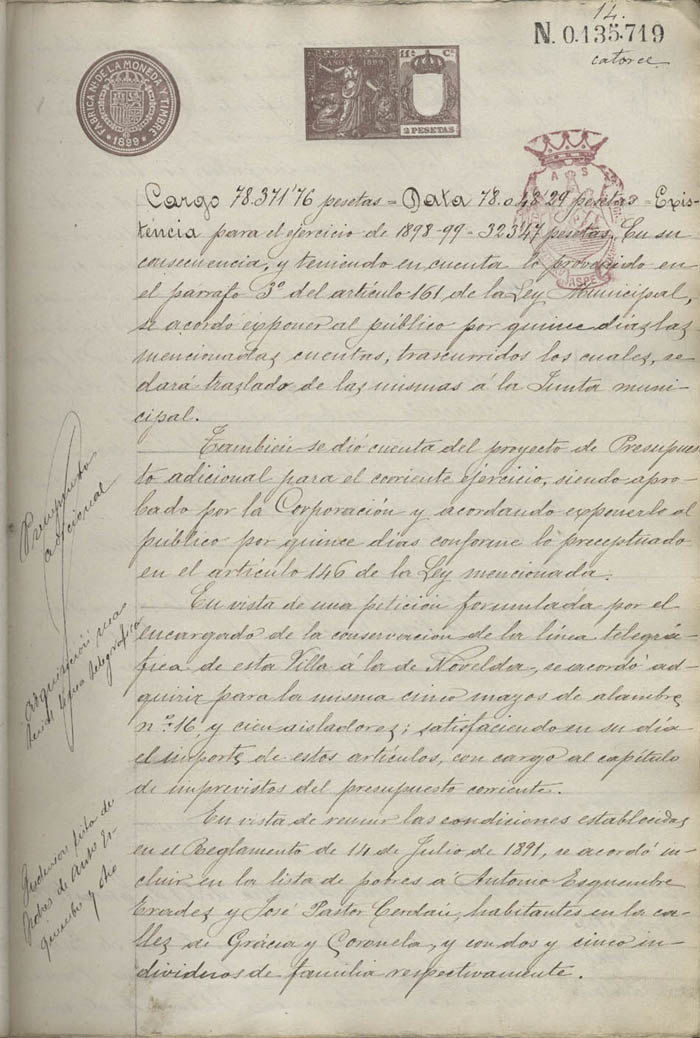 14.
N. 0.135.719
catorce
FABRICA NAL DE LA MONEDA Y TIMBRE
1899
11ª Cª
AÑO 1899
2 PESETAS
A S
ASPE
Cargo 78.371'76 pesetas = Data 78.048'29 pesetas = Exis-
tencia para el ejercicio de 1898-99 - 323'47 pesetas. En su
consecuencia, y teniendo en cuenta lo prevenido en
el párrafo 3º del artículo 161 de la Ley Municipal,
se acordó exponer al público por quince días las
mencionadas cuentas, trascurridos los cuales, se
dará traslado de las mismas á la Junta muni-
cipal.
También se dió cuenta del proyecto de Presupues-
to adicional para el corriente ejercicio, siendo apro-
bado por la Corporación y acordando exponerlo al
público por quince días conforme lo preceptuado
en el artículo 146 de la Ley mencionada.
En vista de una petición formulada por el
encargado de la conservación de la línea telegrá-
fica de esta Villa á la de Novelda, se acordó ad-
quirir para la misma cinco mayos de alambre
nº 16 y cien aisladores; satisfaciendo en su día
el importe de estos artículos, con cargo al capítulo
de imprevistos del presupuesto corriente.
En vista de reunir las condiciones establecidas
en el Reglamento de 14 de Julio de 1891, se acordó in-
cluir en la lista de pobres á Antonio Esquembre
Eradez y José Pastor Cerdán, habitantes en la ca-
llez de Grácia y Coronela, y con dos y cinco in-
divideros de familia respectivamente.
Presupuesto
adicional
Adquisición
línea telegráfica
Inclusion lista de
Pobres de Antº Es-
quembre y otro